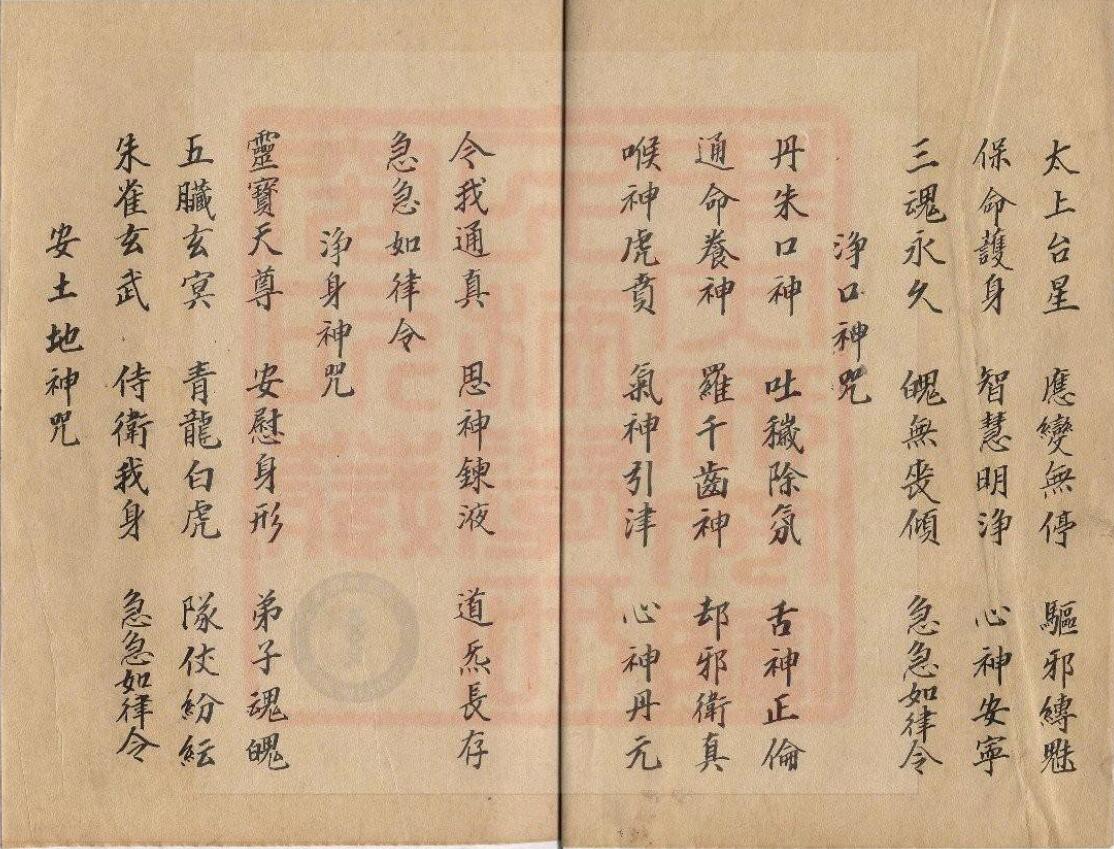 太上台星　應變無停　驅邪縛魅
保命護身　智慧明浄　心神安寧
三魂永久　魄無喪傾　急急如律令
浄口神咒
丹朱口神　吐穢除氛　舌神正倫
通命養神　羅千齒神　却邪衛真
喉神虎賁　氣神引津　心神丹元
令我通真　思神鍊液　道炁長存
急急如律令
浄身神咒
靈寶天尊　安慰身形　弟子魂魄
五臟玄冥　青龍白虎　隊仗紛紜
朱雀玄武　侍衛我身　急急如律令
安土地神咒